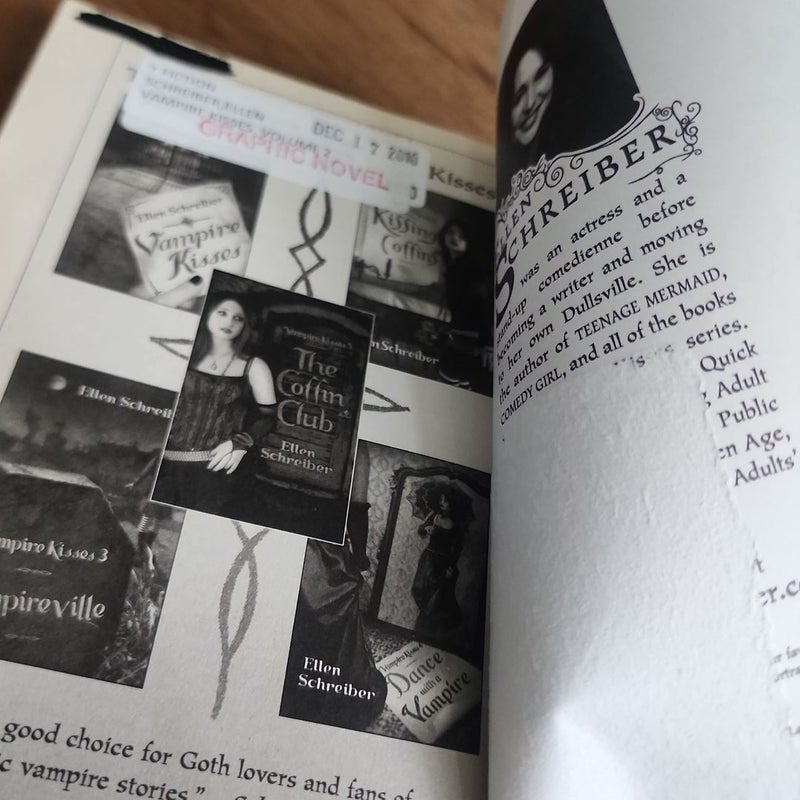 Y FICTION
SCHREIBER, ELLEN
VAMPIRE KISSES, VOLUME 2
DEC 17 2010
GRAPHIC NOVEL
Kisses
Ellen Schreiber
Vampire
Kisses
Kissing
Coffins
Schreiber
Vampire Kisses 5
The
Coffin
Club
Ellen
Schreiber
Ellen Schreib
mpire Kisses 3
mpireville
Ellen
Schreiber
Vampire Kisses
Dance
with a
Vampire
good choice for Goth lovers and fans of
c vampire stories."
ELLEN
SCHREIBER
was an actress and a
stand-up comedienne before
becoming a writer and moving
to her own Dullsville. She is
the author of TEENAGE MERMAID,
COMEDY GIRL, and all of the books
series.
Quick
Adult
Public
en Age,
Adults'
t
er.c